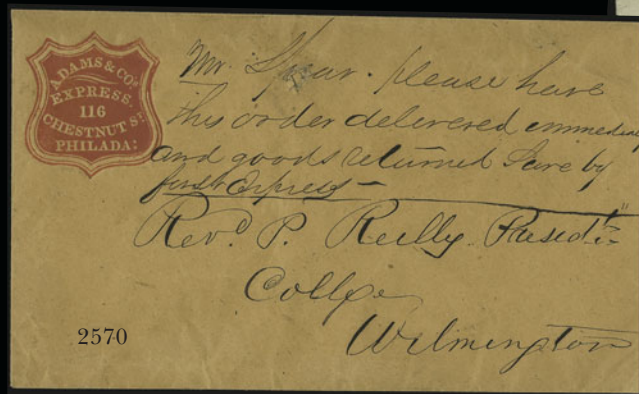 ADAMS & CO'S
EXPRESS.
116
CHESTNUT ST
PHILADA:
Mr. Spear. please have
this order delivered immedia
and goods returned sure by
first Express
Revd. P. Reilly Presidt.
College
Wilmington
2570